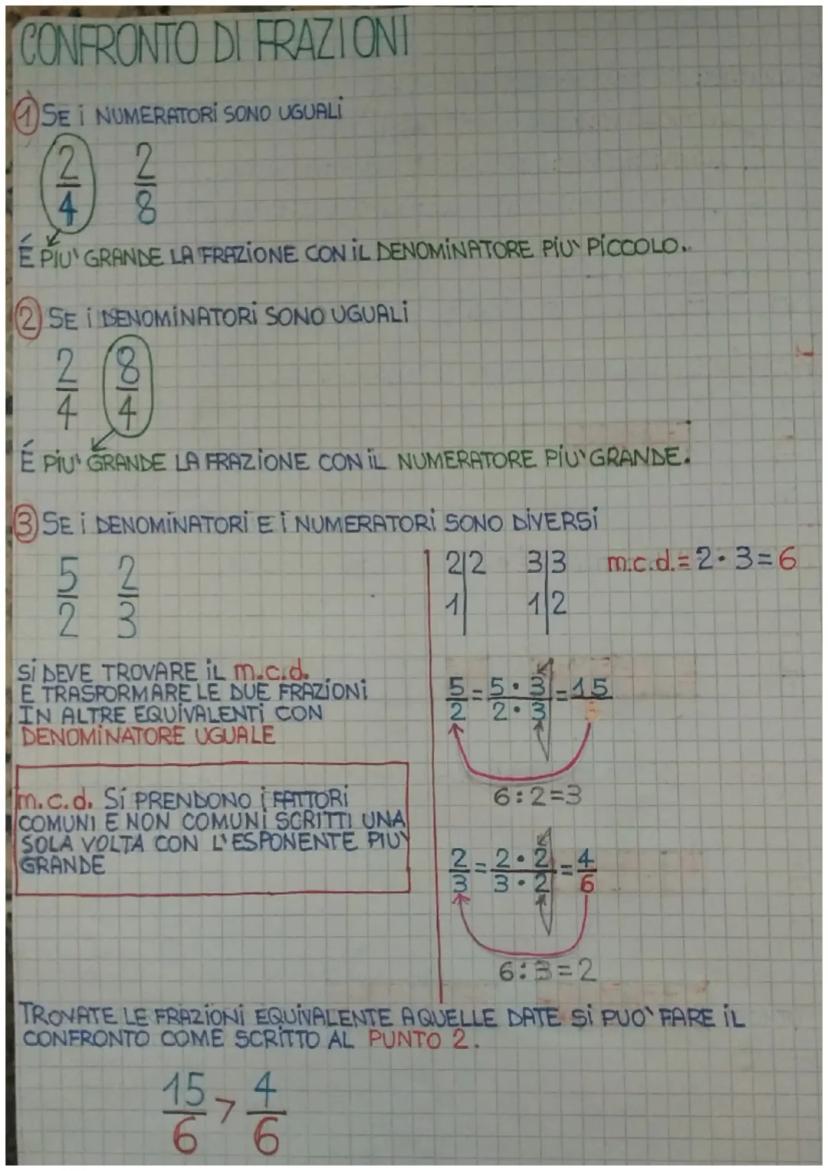 CONFRONTO DI FRAZIONI
1 SE i NUMERATORI SONO UGUALI
2/4 2/8
É PIU' GRANDE LA FRAZIONE CON IL DENOMINATORE PIU' PICCOLO.
2 SE I DENOMINATORI SONO UGUALI
2/4 8/4
É PIU' GRANDE LA FRAZIONE CON IL NUMERATORE PIU' GRANDE.
3 SE i DENOMINATORI E I NUMERATORI SONO DIVERSI
5/2 2/3
SI DEVE TROVARE IL m.c.d.
E TRASFORMARE LE DUE FRAZIONI
IN ALTRE EQUIVALENTI CON
DENOMINATORE UGUALE
m.c.d. SI PRENDONO I FATTORI
COMUNI E NON COMUNI SCRITTI UNA
SOLA VOLTA CON L'ESPONENTE PIU'
GRANDE
2|2 3|3 m.c.d.=2·3=6
1| 1|2
5/2 = 5·3/2·3 = 15/
6:2=3
2/3 = 2·2/3·2 = 4/6
6:3=2
TROVATE LE FRAZIONI EQUIVALENTE A QUELLE DATE SI PUO' FARE IL
CONFRONTO COME SCRITTO AL PUNTO 2.
15/6 > 4/6